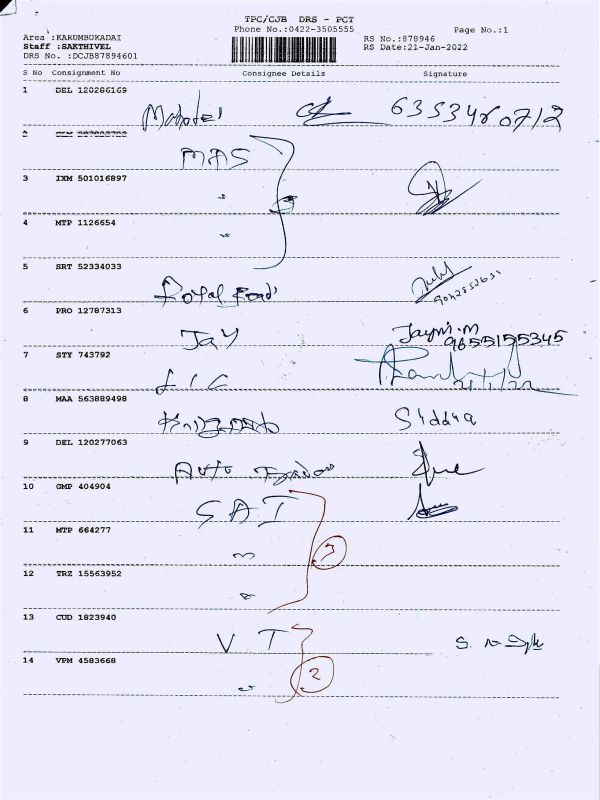 TPC/CJB DRS - PCT
Phone No.:0422-3505555
Page No.:1
Area :KARUMBUKADAI
RS No.:878946
Staff :SAKTHIVEL
RS Date:21-Jan-2022
DRS No. :DCJB87894601
S No Consignment No Consignee Details Signature
1 DEL 120286169
6353460712
2
MAS
3 IXM 501016897
"
4 MTP 1126654
"
5 SRT 52334033
Royal Foods
6 PRO 12787313
Jay Jaymi.m
9655155345
7 STY 743792
LIC 21/1/22
8 MAA 563889498
Siddiq
9 DEL 120277063
Auto
10 GMP 404904
SAI
11 MTP 664277
" 3
12 TRZ 15563952
"
13 CUD 1823940
VT
14 VPM 4583668
" 2